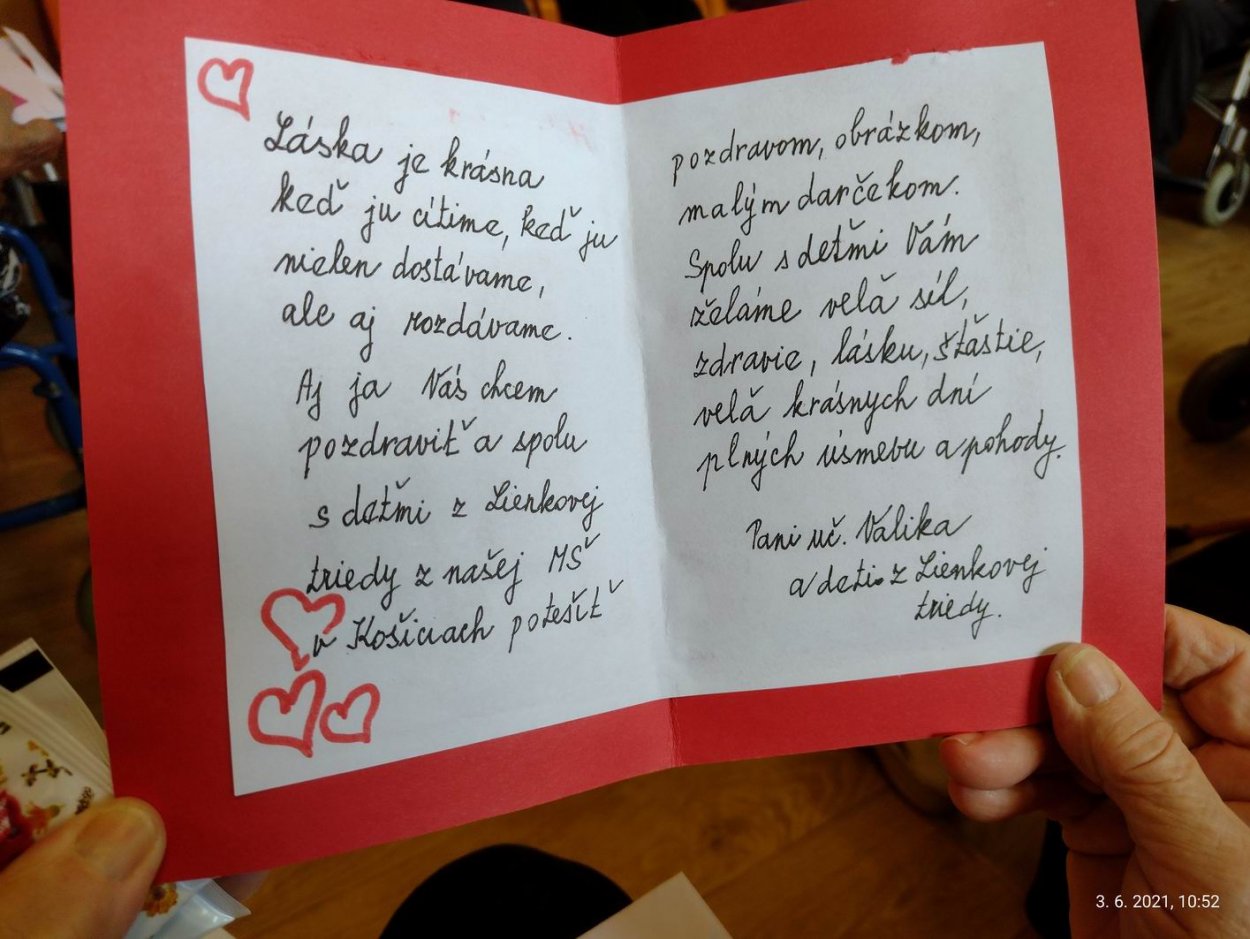 Láska je krásna
keď ju cítime, keď ju
nielen dostávame,
ale aj rozdávame.
Aj ja Vás chcem
pozdraviť a spolu
s deťmi z Lienkovej
triedy z našej MŠ
v Košiciach potešiť
pozdravom, obrázkom,
malým darčekom.
Spolu s deťmi Vám
želáme veľa síl,
zdravie, lásku, šťastie,
veľa krásnych dní
plných úsmevu a pohody.
Pani uč. Valika
a deti z Lienkovej
triedy.
3. 6. 2021, 10:52